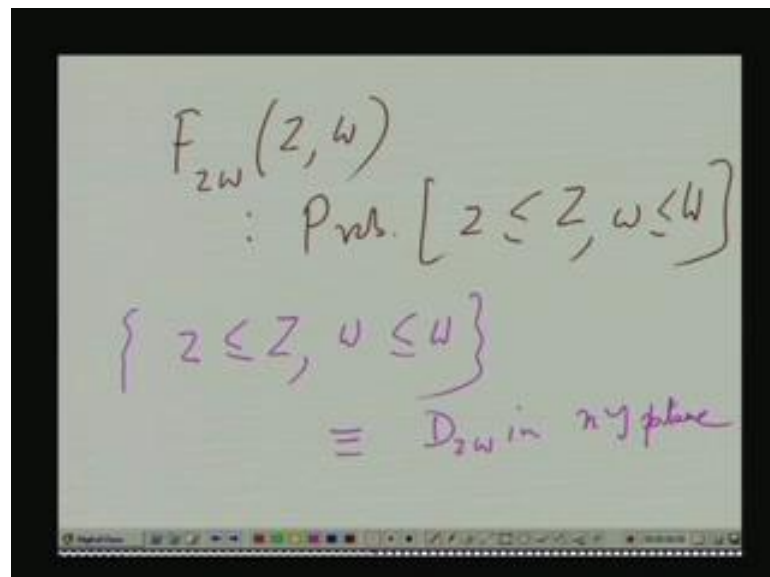 F_zw (Z, W)
: Prob. [ z ≤ Z, w ≤ W ]
{ z ≤ Z, w ≤ W }
≡ D_zw in xy plane